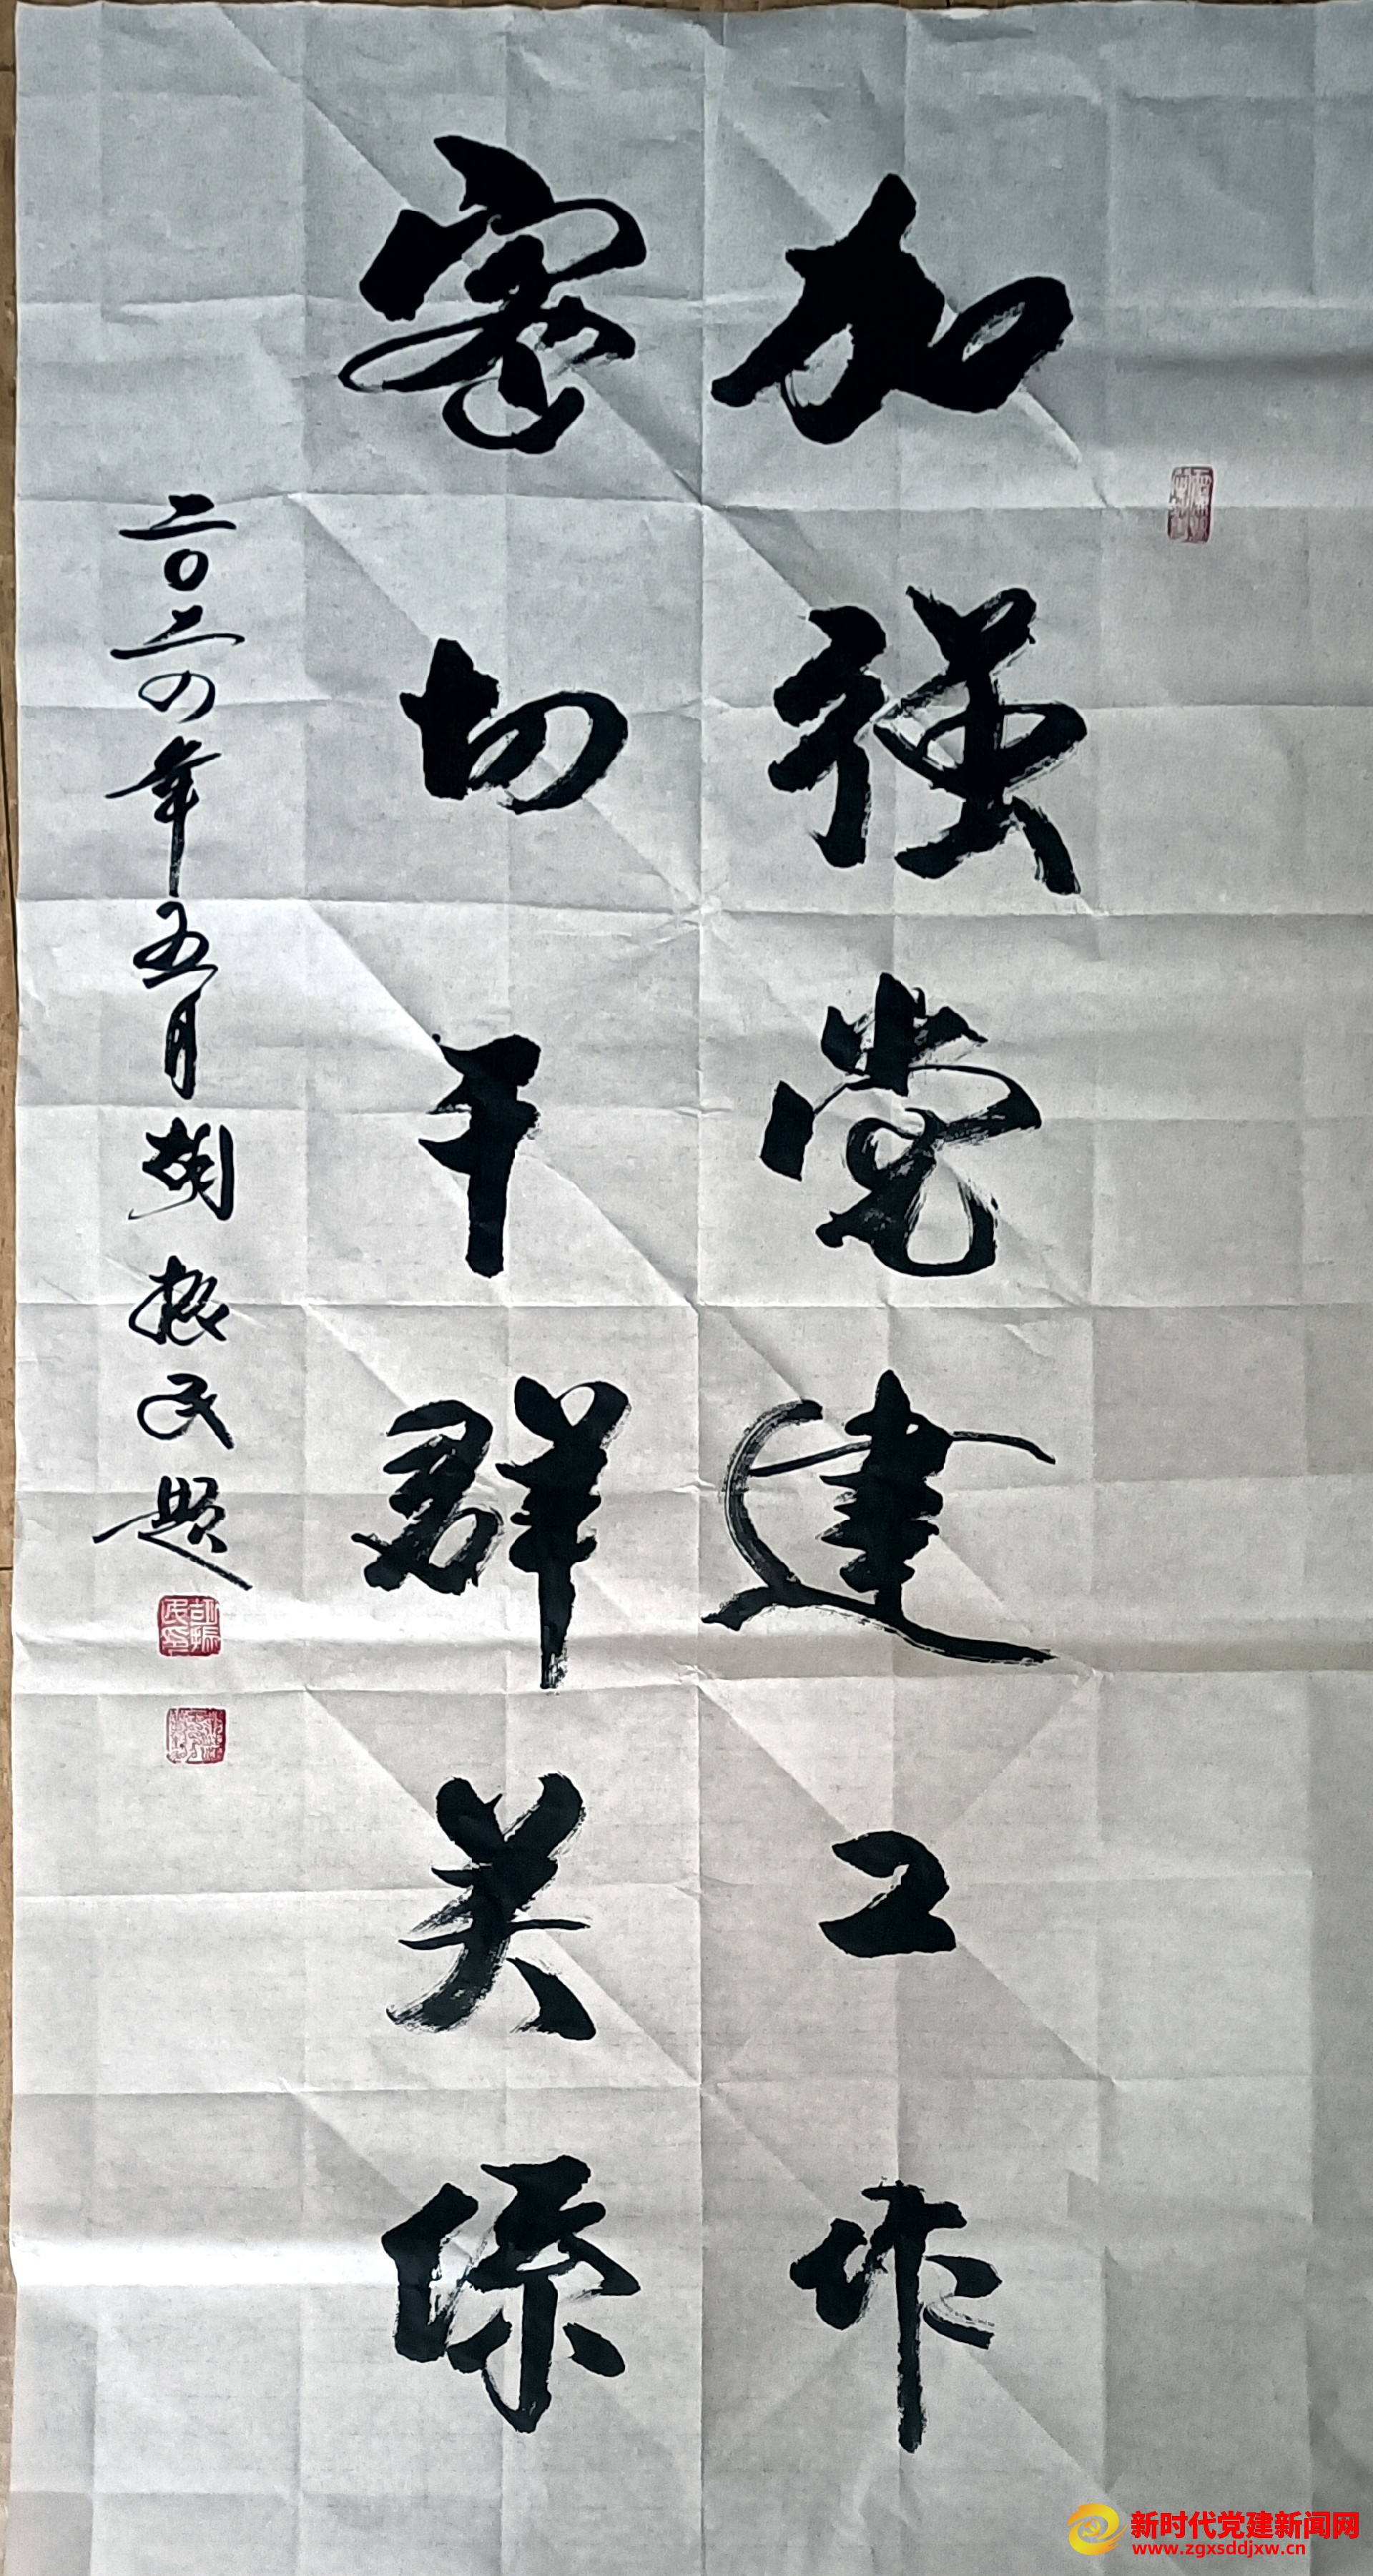 加强党建工作
密切干群关系
二〇二四年五月胡振民题
新时代党建新闻网
www.zgxsddjxw.cn